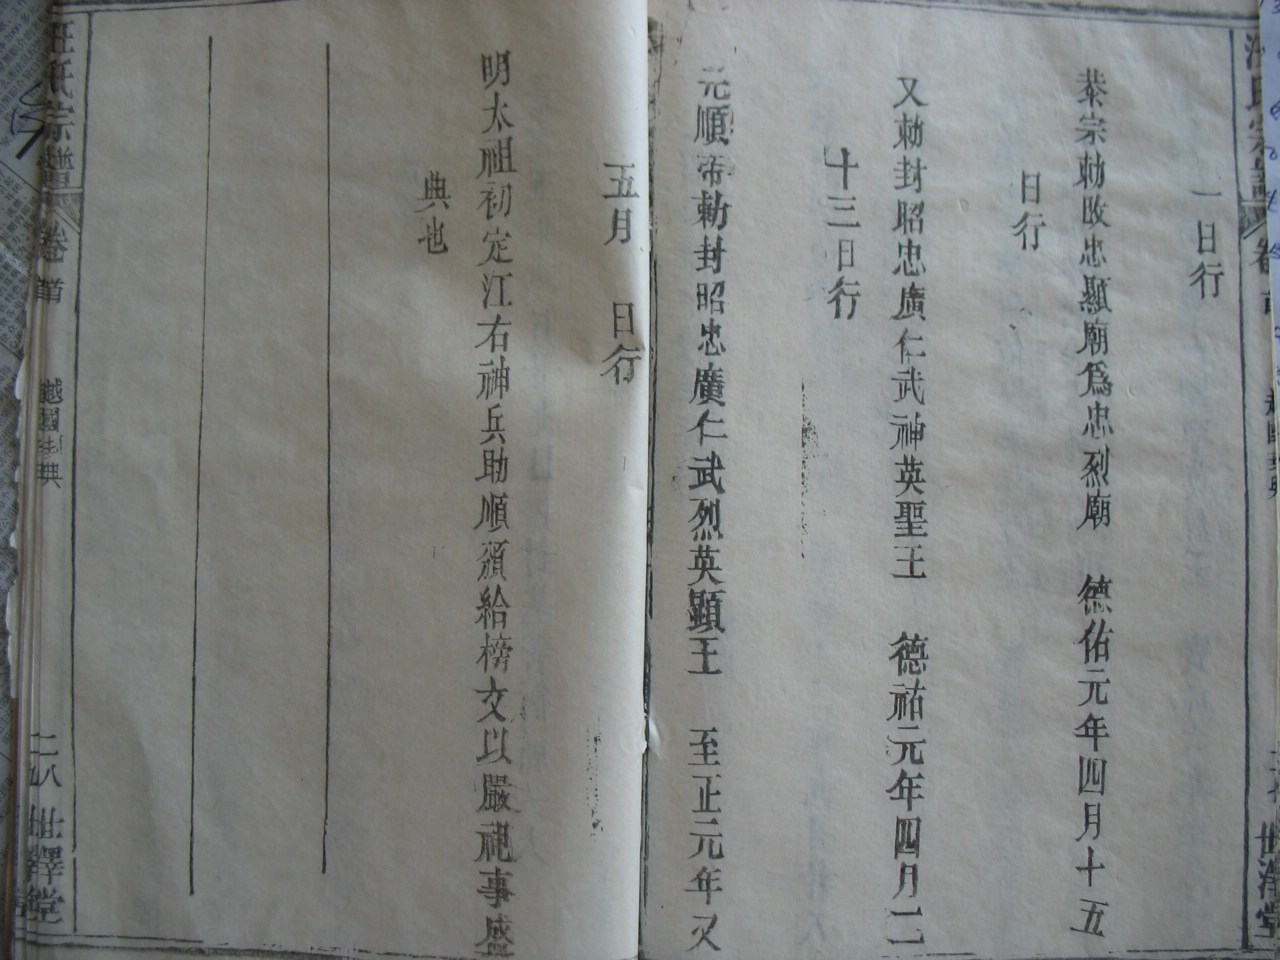 汪氏宗譜 卷首 越國封典 世澤堂
一日行
恭宗勅改忠顯廟爲忠烈廟 德佑元年四月十五
日行
又勅封昭忠廣仁武神英聖王 德祐元年四月二
十三日行
元順帝勅封昭忠廣仁武烈英顯王 至正元年又
五月 日行
明太祖初定江右神兵助順頒給榜文以嚴祀事盛
典也
汪氏宗譜 卷首 越國封典 二八 世澤堂